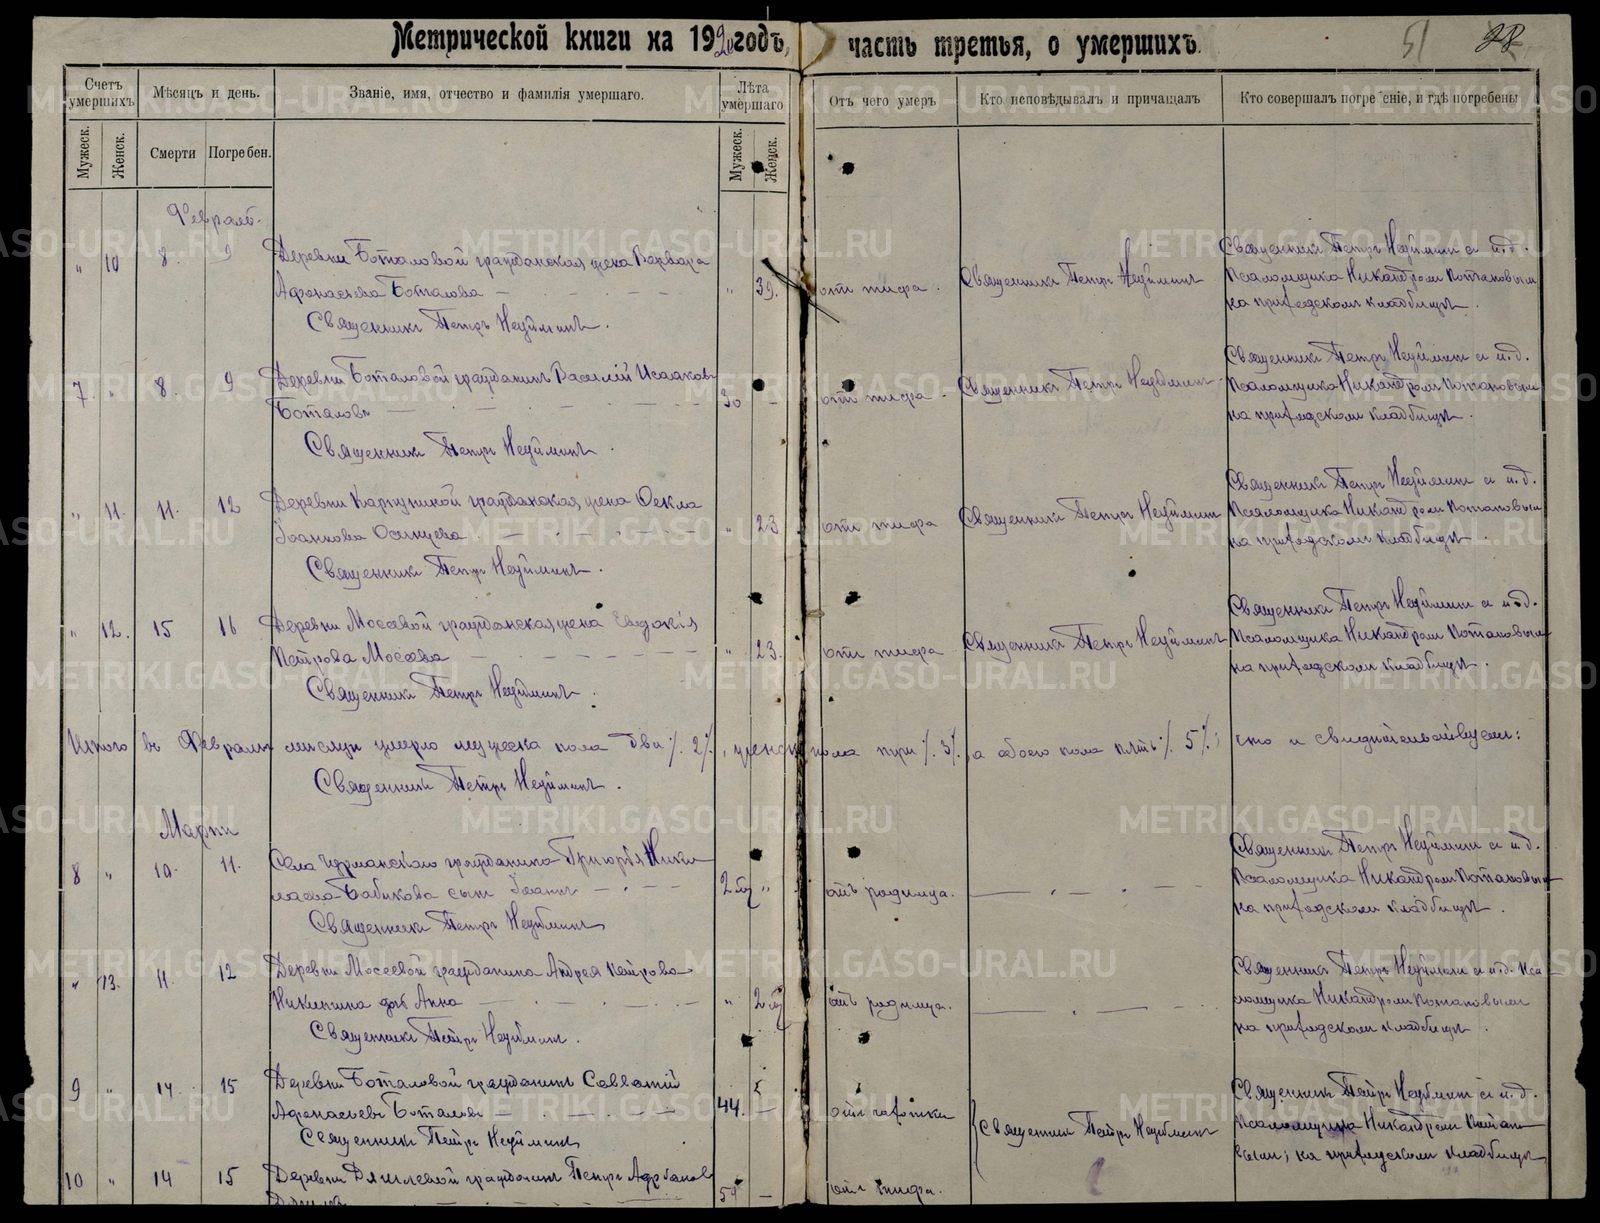 Метрической книги на 1920 годъ, часть третья, о умершихъ.
51 28
Счетъ умершихъ
Мѣсяцъ и день.
Званіе, имя, отчество и фамилія умершаго.
Лѣта умершаго
Отъ чего умеръ
Кто исповѣдывалъ и причащалъ
Кто совершалъ погребеніе, и гдѣ погребены
Мужеск.
Женск.
Смерти
Погребен.
Мужеск.
Женск.
Февраль.
" 10 8 9 Деревни Боталовой гражданская жена Варвара
Афонасьева Боталова " 39. отъ тифа.
Священникъ Петръ Неуйминъ.
Священникъ Петръ Неуйминъ
Священникъ Петръ Неуйминъ с и.д.
Псаломщика Никандромъ Потаповымъ
на приходскомъ кладбищѣ.
7 " 8 9 Деревни Боталовой гражданинъ Василій Исааковъ
Боталовъ 30 – отъ тифа.
Священникъ Петръ Неуйминъ
Священникъ Петръ Неуйминъ
Священникъ Петръ Неуйминъ с и.д.
Псаломщика Никандромъ Потаповымъ
на приходскомъ кладбищѣ.
" 11. 11. 12 Деревни гражданская жена Ѳекла
Іоаннова Осинцева " 23 отъ тифа
Священникъ Петръ Неуйминъ.
Священникъ Петръ Неуйминъ
Священникъ Петръ Неуйминъ с и.д.
Псаломщика Никандромъ Потаповымъ
на приходскомъ кладбищѣ.
" 12. 15 16 Деревни Мосеевой гражданская жена Евдокія
Петрова Мосеева " 23. отъ тифа
Священникъ Петръ Неуйминъ.
Священникъ Петръ Неуйминъ
Священникъ Петръ Неуйминъ с и.д.
Псаломщика Никандромъ Потаповымъ
на приходскомъ кладбищѣ.
Итого въ Февралѣ мѣсяцѣ умерло мужеска пола два /. 2 /., женска пола три /. 3 /., а обоего пола пять /. 5 /.; что и свидѣтельствуемъ:
Священникъ Петръ Неуйминъ.
Мартъ
8 " 10. 11. Села гражданина Григорія Нико
лаева Бабикова сынъ Іоаннъ 2 " отъ родимца.
Священникъ Петръ Неуйминъ
Священникъ Петръ Неуйминъ с и.д.
Псаломщика Никандромъ Потаповымъ
на приходскомъ кладбищѣ.
" 13. 11. 12 Деревни Мосеевой гражданина Андрея Петрова
Никитина дочь Анна " 2 отъ родимца.
Священникъ Петръ Неуйминъ.
Священникъ Петръ Неуйминъ с и.д. Пса
ломщика Никандромъ Потаповымъ
на приходскомъ кладбищѣ.
9 " 14. 15 Деревни Боталовой гражданинъ Савватій
Афонасьевъ Боталовъ 44. – отъ чахотки
Священникъ Петръ Неуйминъ
Священникъ Петръ Неуйминъ
Священникъ Петръ Неуйминъ с и.д.
Псаломщика Никандромъ Потапо
вымъ; на приходскомъ кладбищѣ
10 " 14 15 Деревни гражданинъ Петръ
отъ тифа.
METRIKI.GASO-URAL.RU